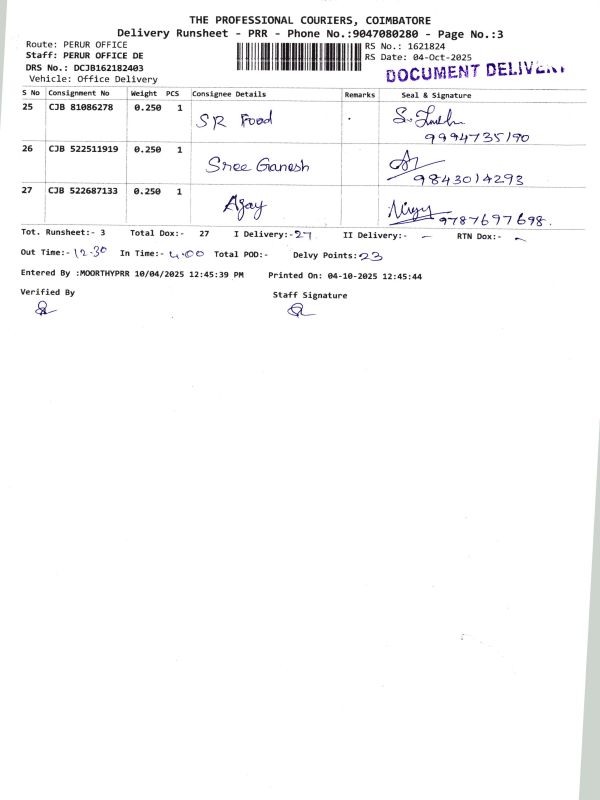 THE PROFESSIONAL COURIERS, COIMBATORE
Delivery Runsheet - PRR - Phone No.:9047080280 - Page No.:3
Route: PERUR OFFICE RS No.: 1621824
Staff: PERUR OFFICE DE RS Date: 04-Oct-2025
DRS No.: DCJB162182403
DOCUMENT DELIVERY
Vehicle: Office Delivery
S No Consignment No Weight PCS Consignee Details Remarks Seal & Signature
25 CJB 81086278 0.250 1 SR Food
9994735190
26 CJB 522511919 0.250 1 Sree Ganesh
9843014293
27 CJB 522687133 0.250 1 Ajay 9787697698.
Tot. Runsheet:- 3 Total Dox:- 27 I Delivery:- 27 II Delivery:- - RTN Dox:- -
Out Time:- 12.30 In Time:- 4.00 Total POD:- Delvy Points: 23
Entered By :MOORTHYPRR 10/04/2025 12:45:39 PM Printed On: 04-10-2025 12:45:44
Verified By Staff Signature